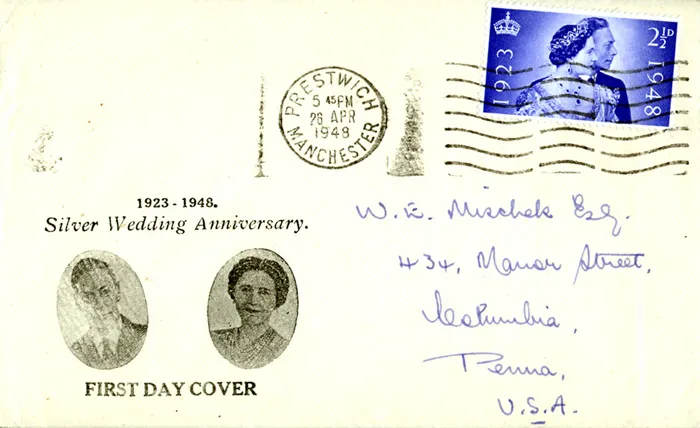 1923
2½D
1948
PRESTWICH
5 45PM
26 APR
1948
MANCHESTER
1923 - 1948.
Silver Wedding Anniversary.
FIRST DAY COVER
W. E. Mischek Esq.
434, Manor Street,
Columbia,
Penna,
U.S.A.